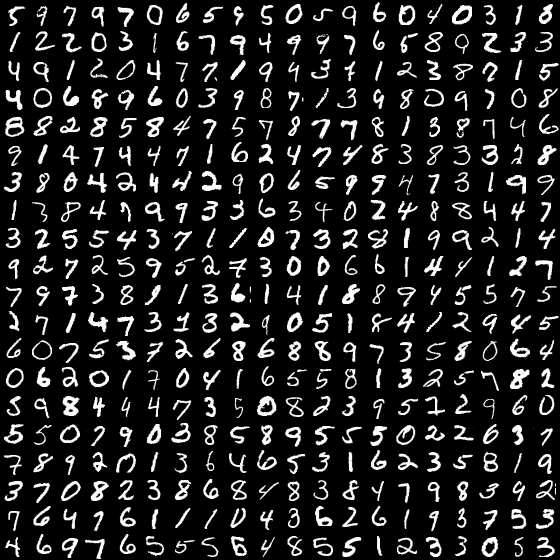 5 9 7 9 7 0 6 5 9 5 0 5 9 6 0 4 0 3 1 8
1 2 2 0 3 1 6 7 9 4 9 9 7 6 5 8 9 2 3 3
4 9 1 2 0 4 7 7 1 9 4 3 7 1 2 3 8 7 1 5
4 0 6 8 9 6 0 3 9 8 7 1 3 9 8 0 9 7 0 8
8 8 2 8 5 8 4 7 5 7 8 7 7 8 1 3 8 7 4 6
9 1 4 7 4 4 7 1 6 2 4 7 4 8 3 8 3 3 2 8
3 8 0 4 2 4 4 2 9 0 6 5 9 9 4 7 3 1 9 9
1 3 8 4 7 9 9 3 3 6 3 4 0 2 4 8 8 4 4 7
3 2 5 5 4 3 7 1 1 0 7 3 2 8 1 9 9 2 1 4
9 2 7 2 5 9 5 2 7 3 0 0 6 6 1 4 4 1 2 7
7 9 7 3 8 9 1 3 6 1 4 1 8 8 9 4 5 5 7 5
2 7 1 4 7 3 1 3 2 9 0 5 1 8 4 1 2 9 4 5
6 0 7 5 3 7 2 6 8 6 8 8 9 7 3 5 8 0 6 4
0 6 2 0 1 7 0 4 1 6 5 5 8 1 3 2 5 7 8 2
5 9 8 4 4 4 7 3 5 0 8 2 3 9 5 2 2 9 6 0
5 5 0 7 9 0 3 8 5 8 9 5 5 5 0 2 2 6 3 7
7 8 9 2 0 1 3 6 4 6 5 3 1 6 2 3 5 8 1 9
3 7 0 8 2 3 8 6 8 4 8 3 8 4 7 9 8 3 4 2
7 6 4 7 6 1 1 1 0 4 3 6 2 6 1 9 3 7 5 3
4 6 9 7 6 5 5 5 6 4 8 5 5 1 2 3 3 0 5 3